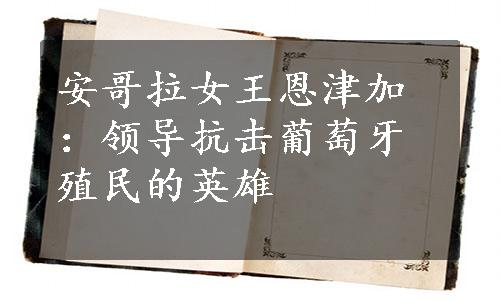 安哥拉女王恩津加
：领导抗击葡萄牙
殖民的英雄